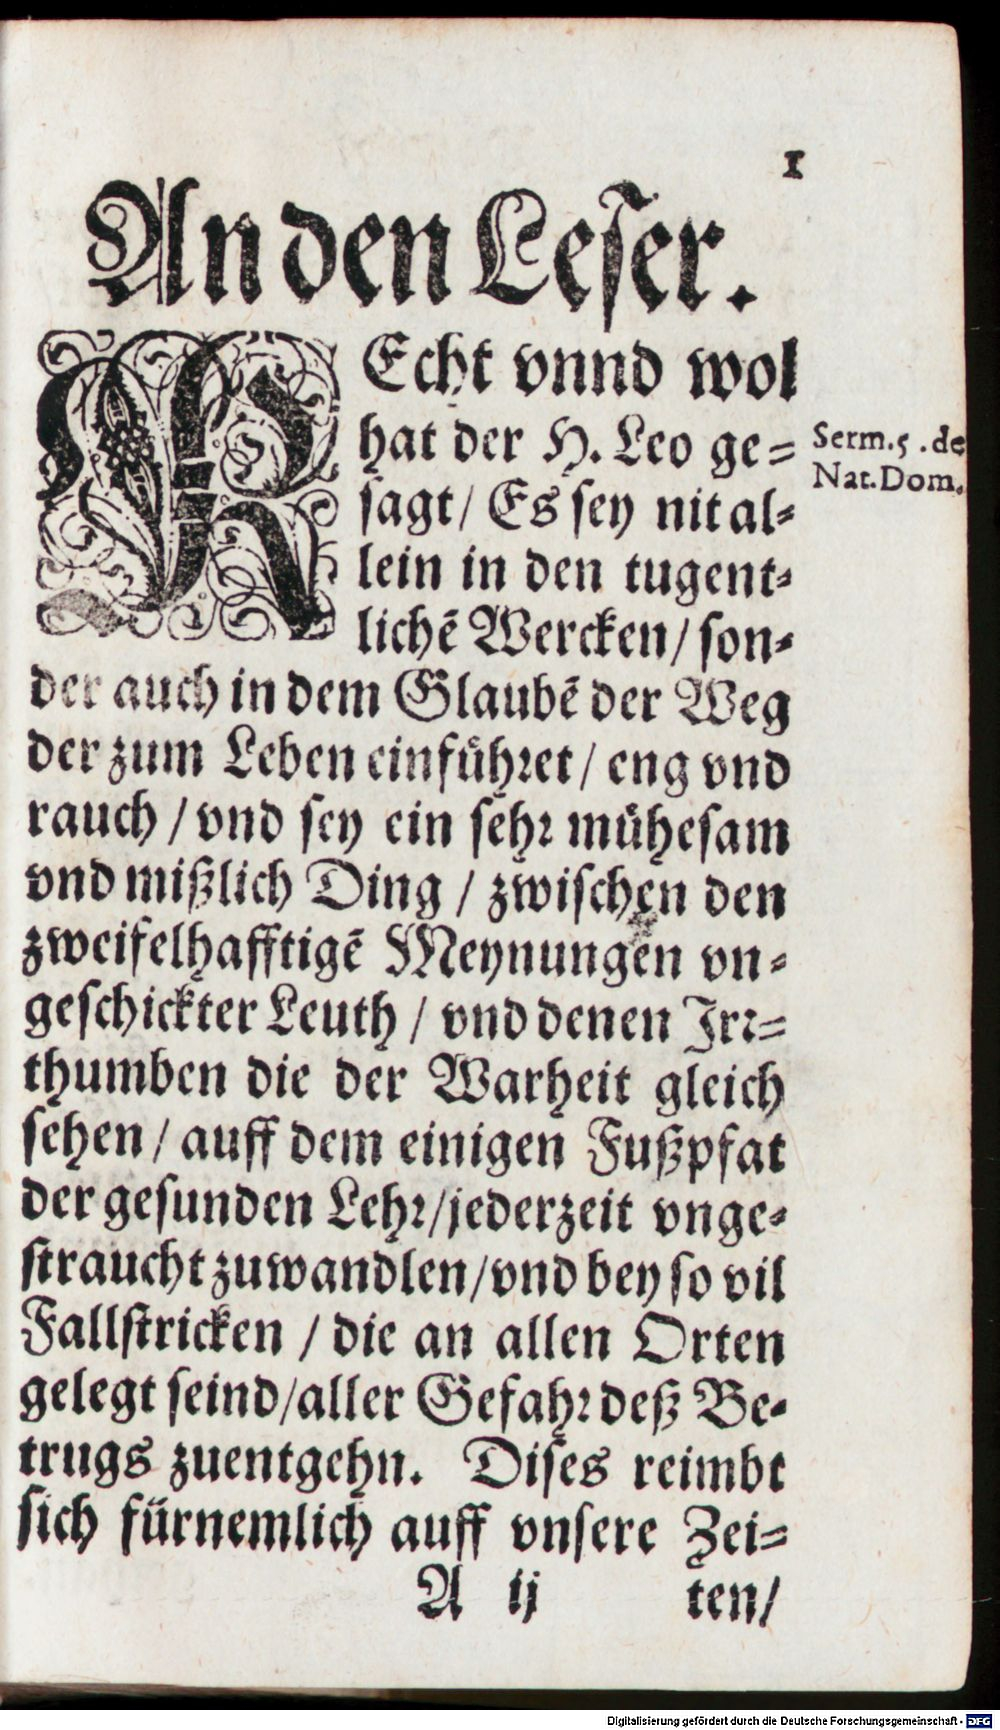 1
An den Leser.
REcht vnnd wol
hat der H. Leo ge=
sagt/ Es sey nit al=
lein in den tugent=
lichẽ Wercken/ son=
der auch in dem Glaubẽ der Weg
der zum Leben einführet/ eng vnd
rauch/ vnd sey ein sehr mühesam
vnd mißlich Ding/ zwischen den
zweifelhafftigẽ Meynungen vn=
geschickter Leuth/ vnd denen Irr=
thumben die der Warheit gleich
sehen/ auff dem einigen Fußpfat
der gesunden Lehr/ jederzeit vnge=
straucht zuwandlen/ vnd bey so vil
Fallstricken/ die an allen Orten
gelegt seind/ aller Gefahr deß Be=
trugs zuentgehn. Dises reimbt
sich fürnemlich auff vnsere Zei=
A ij ten/
Serm.5.de
Nat.Dom.
Digitalisierung gefördert durch die Deutsche Forschungsgemeinschaft - DFG